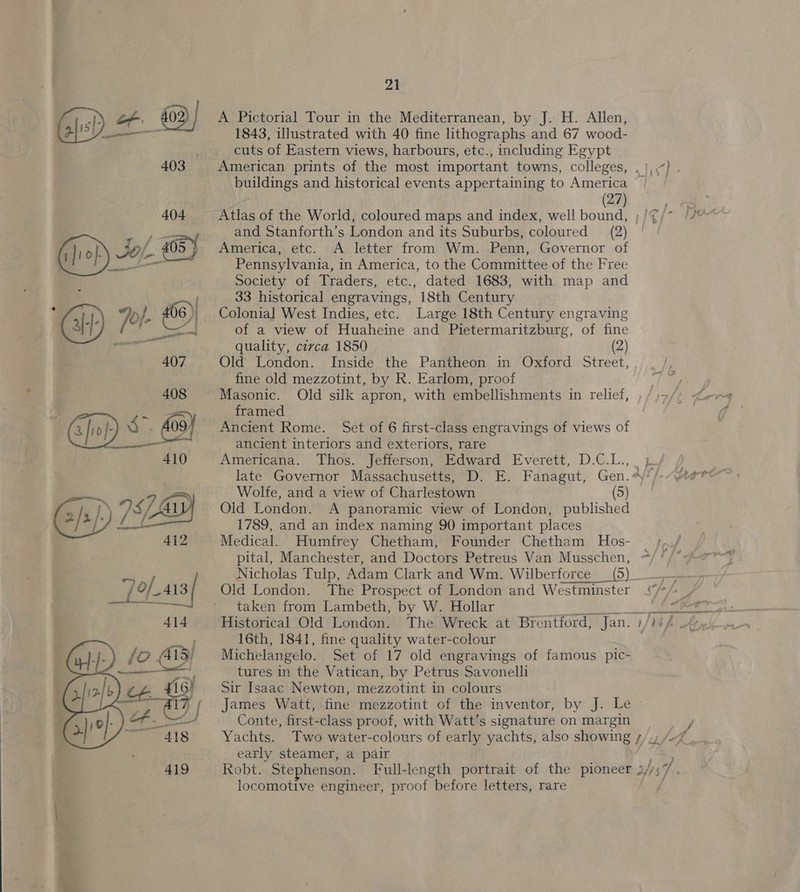 21
(2/15/-) cf. 402 A Pictorial Tour in the Mediterranean, by J. H. Allen,
1843, illustrated with 40 fine lithographs and 67 wood-
cuts of Eastern views, harbours, etc., including Egypt
403 American prints of the most important towns, colleges,
buildings and historical events appertaining to America
(27)
404 Atlas of the World, coloured maps and index, well bound,
and Stanforth's London and its Suburbs, coloured (2)
(1/10/-) 30/- 405 America, etc. A letter from Wm. Penn, Governor of
Pennsylvania, in America, to the Committee of the Free
Society of Traders, etc., dated 1683, with map and
33 historical engravings, 18th Century
(3/-/-) 70/- 406 Colonial West Indies, etc. Large 18th Century engraving
of a view of Huaheine and Pietermaritzburg, of fine
quality, circa 1850 (2)
407 Old London. Inside the Pantheon in Oxford Street,
fine old mezzotint, by R. Earlom, proof
408 Masonic. Old silk apron, with embellishments in relief,
framed
(3/10/-) 409 Ancient Rome. Set of 6 first-class engravings of views of
ancient interiors and exteriors, rare
410 Americana. Thos. Jefferson, Edward Everett, D.C.L.,
late Governor Massachusetts, D. E. Fanagut, Gen.
Wolfe, and a view of Charlestown (5)
(2/2/-) 75/- 411 Old London. A panoramic view of London, published
1789, and an index naming 90 important places
412 Medical. Humfrey Chetham, Founder Chetham Hos-
pital, Manchester, and Doctors Petreus Van Musschen,
Nicholas Tulp, Adam Clark and Wm. Wilberforce (5)
70/- 413 Old London. The Prospect of London and Westminster
taken from Lambeth, by W. Hollar
414 Historical Old London. The Wreck at Brentford, Jan.
16th, 1841, fine quality water-colour
(4/-/-) 10 415 Michelangelo. Set of 17 old engravings of famous pic-
tures in the Vatican, by Petrus Savonelli
(2/12/6) cf. 416 Sir Isaac Newton, mezzotint in colours
(2/10/-) cf. 417 James Watt, fine mezzotint of the inventor, by J. Le
Conte, first-class proof, with Watt's signature on margin
418 Yachts. Two water-colours of early yachts, also showing
early steamer, a pair
419 Robt. Stephenson. Full-length portrait of the pioneer
locomotive engineer, proof before letters, rare